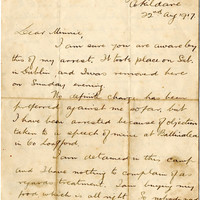 Kildare
22nd Aug 1917
Dear Minnie,
I am sure you are aware by
this of my arrest. It took place on Sat.
in Dublin and I was removed here
on Sunday evening.
No definite charge has been
preferred against me so far, but
I have been arrested because of objection
taken to a speech of mine at Ballinalee
in Co Longford
I am detained in this camp
and I have nothing to complain of as
regards treatment. I am enjoying my
food which is all right.